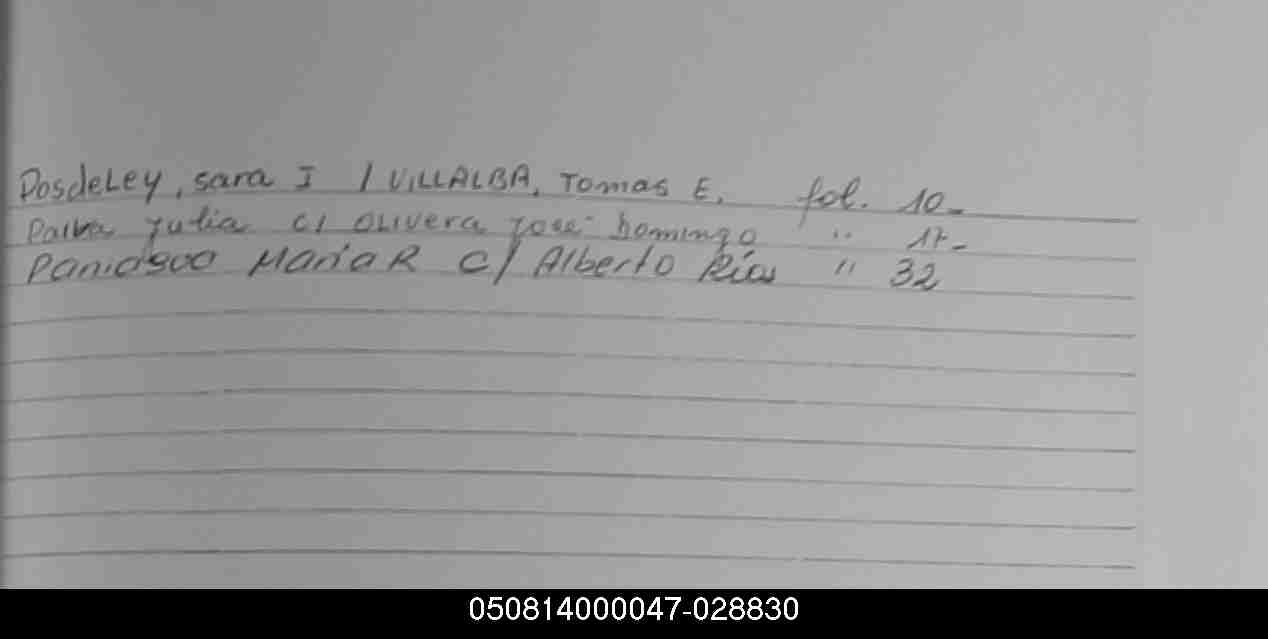 Posdeley, sara I / VILLALBA, Tomas E. fol. 10-
Paiva Julia c/ Olivera José Domingo " 17-
Paniagua Maria R c/ Alberto Ríos " 32
050814000047-028830